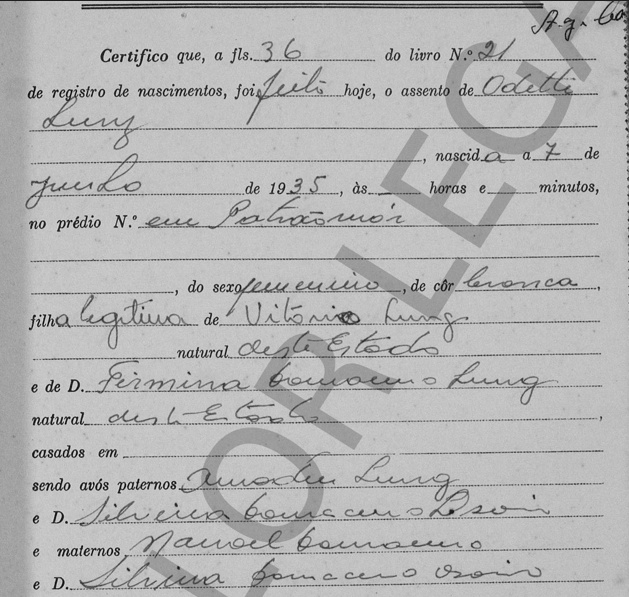 Certifico que, a fls. 36 do livro N.º 21
de registro de nascimentos, foi feito hoje, o assento de Odette
Lung
, nascida a 7 de
junho de 1935, às horas e minutos,
no prédio N.º em Patrãomór
, do sexo femenino, de côr branca,
filha legitima de Vitório Lung
natural deste Estado
e de D. Firmina Lung
natural deste Estado,
casados em
sendo avós paternos Amadeu Lung
e D. Silvina
e maternos Manoel
e D. Silvina
VALOR LEGA